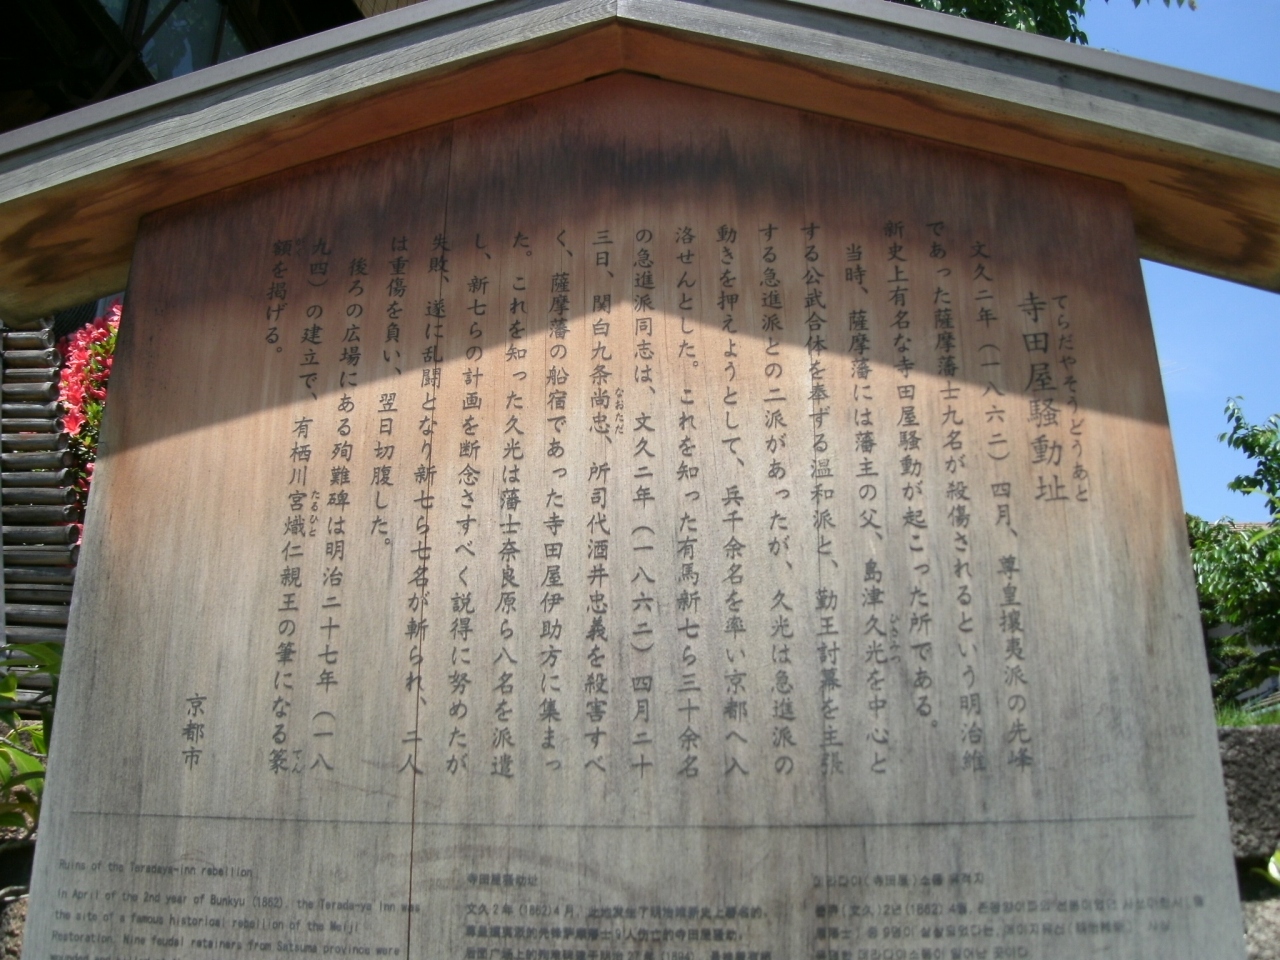 てらだやそうどうあと
寺田屋騒動址
文久二年(一八六二)四月、尊皇攘夷派の先峰
であった薩摩藩士九名が殺傷されるという明治維
新史上有名な寺田屋騒動が起こった所である。
当時、薩摩藩には藩主の父、島津久光を中心と
する公武合体を奉ずる温和派と、勤王討幕を主張
する急進派との二派があったが、久光は急進派の
動きを押えようとして、兵千余名を率い京都へ入
洛せんとした。これを知った有馬新七ら三十余名
の急進派同志は、文久二年(一八六二)四月二十
三日、関白九条尚忠、所司代酒井忠義を殺害すべ
く、薩摩藩の船宿であった寺田屋伊助方に集まっ
た。これを知った久光は藩士奈良原ら八名を派遣
し、新七らの計画を断念さすべく説得に努めたが
失敗、遂に乱闘となり新七ら七名が斬られ、二人
は重傷を負い、翌日切腹した。
後ろの広場にある殉難碑は明治二十七年(一八
九四)の建立で、有栖川宮熾仁親王の筆になる篆
額を掲げる。
京都市
Ruins of the Teradaya-inn rebellion
In April of the 2nd year of Bunkyu (1862), the Terada-ya Inn was
the site of a famous historical rebellion of the Meiji
Restoration. Nine feudal retainers from Satsuma province were
寺田屋骚动址
文久2年(1862)4月,此地发生了明治维新史上著名的,